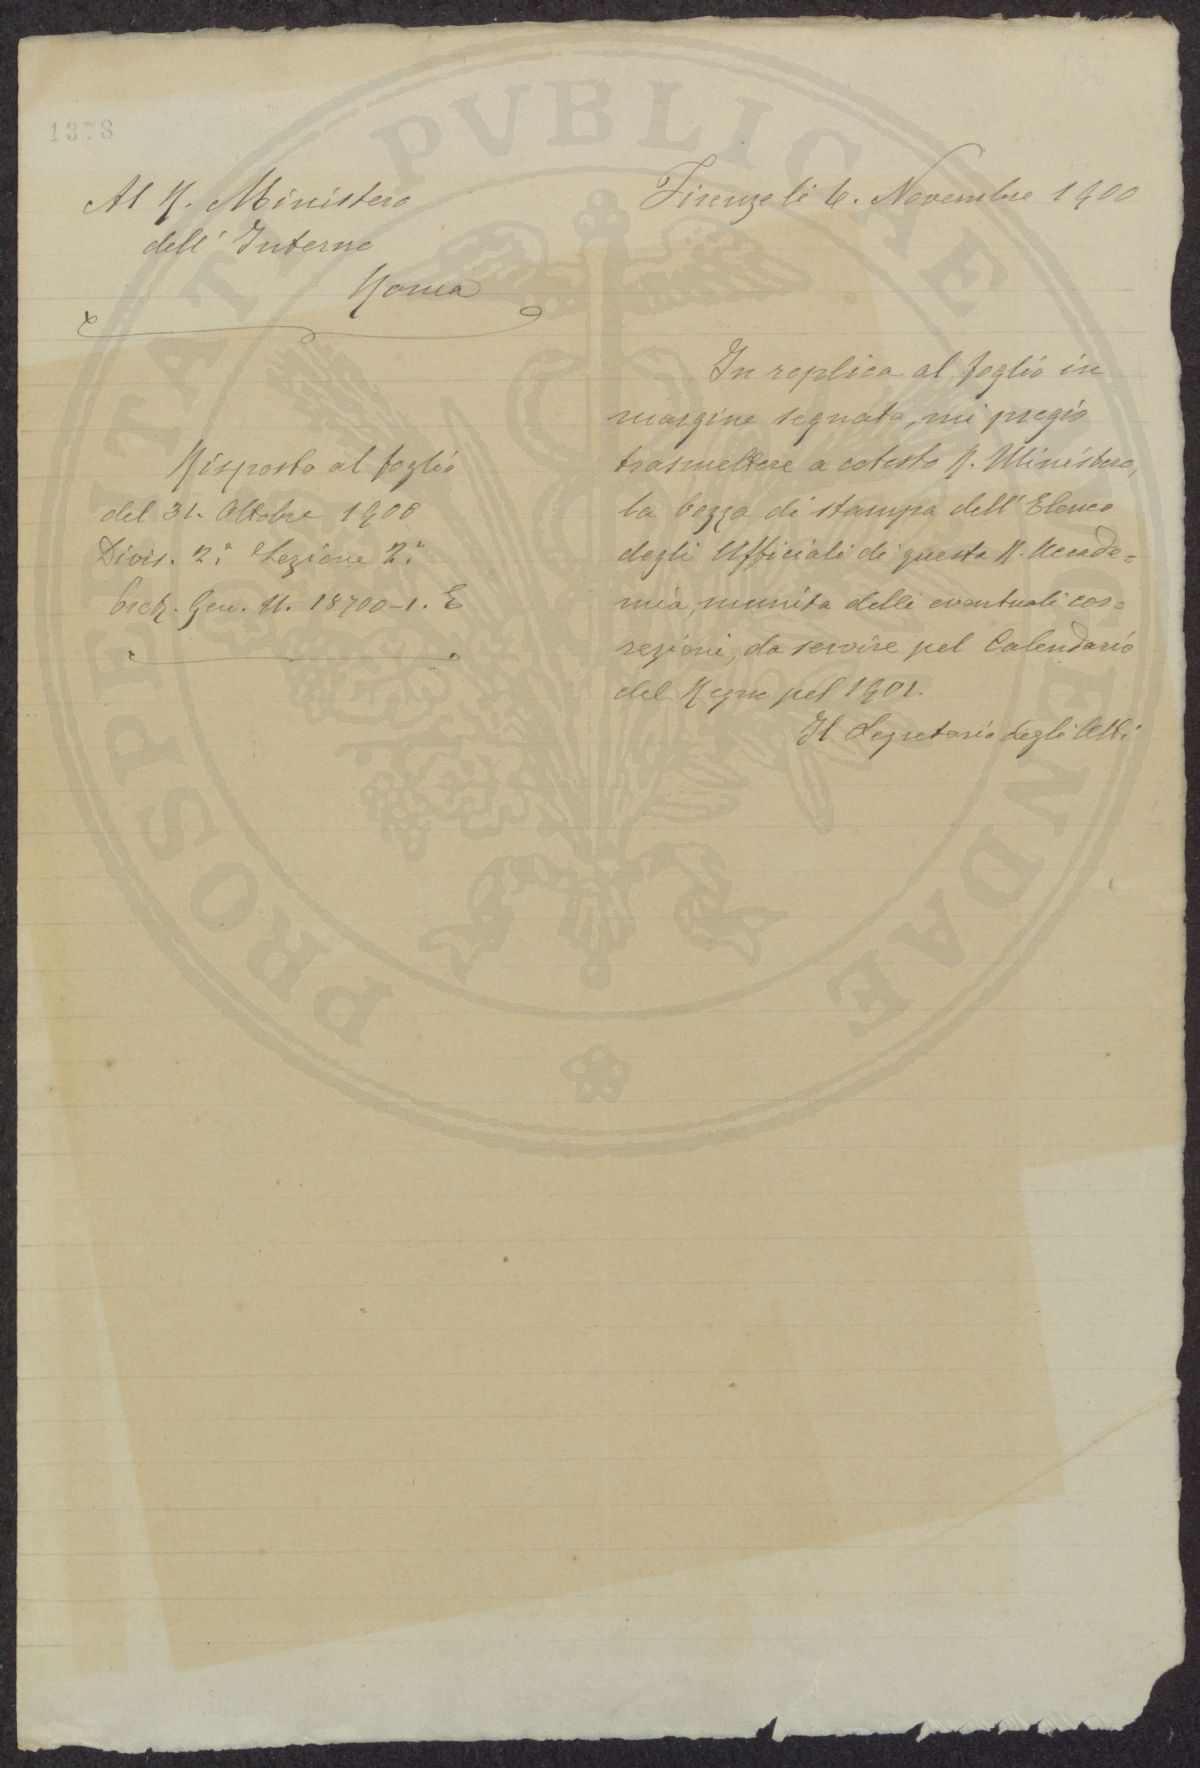 1378
Al R. Ministero
dell' Interno
Roma
Firenze li 6. Novembre 1900
Risposta al foglio
del 31. Ottobre 1900
Divis. 2ª Sezione 2ª
Gen. N. 18700-1. E
In replica al foglio in
margine segnato, mi pregio
trasmettere a cotesto R. Ministero,
la bozza di stampa dell' Elenco
degli Ufficiali di questa R. Accade=
mia, munita delle eventuali cor=
rezioni, da servire pel Calendario
del Regno pel 1901.
Il Segretario degli Atti
PROSPERITATI PVBLICAE AVGENDAE